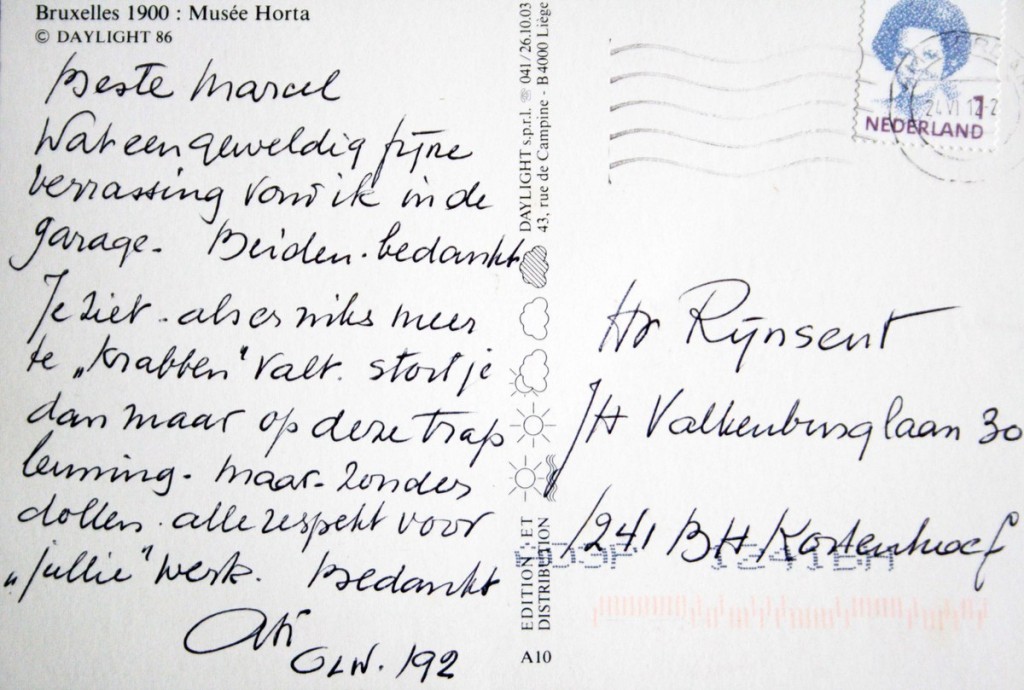 Bruxelles 1900 : Musée Horta
© DAYLIGHT 86
Beste Marcel
Wat een geweldig fijne
verrassing vond ik in de
garage. Beiden bedankt
Je ziet. als er niks meer
te „krabben" valt. stort je
dan maar op deze trap
leuning. maar zonder
dollen. alle respekt voor
„jullie" werk. Bedankt
Ati
GLW. 192
DAYLIGHT s.p.r.l. ☏ 041/26.10.03
43, rue de Campine - B4000 Liège
EDITION ET
DISTRIBUTION
A10
24 VI 12-2
1
NEDERLAND
Hr Rijnsent
JH Valkenburglaan 30
1241 BH Kortenhoef
1241BH